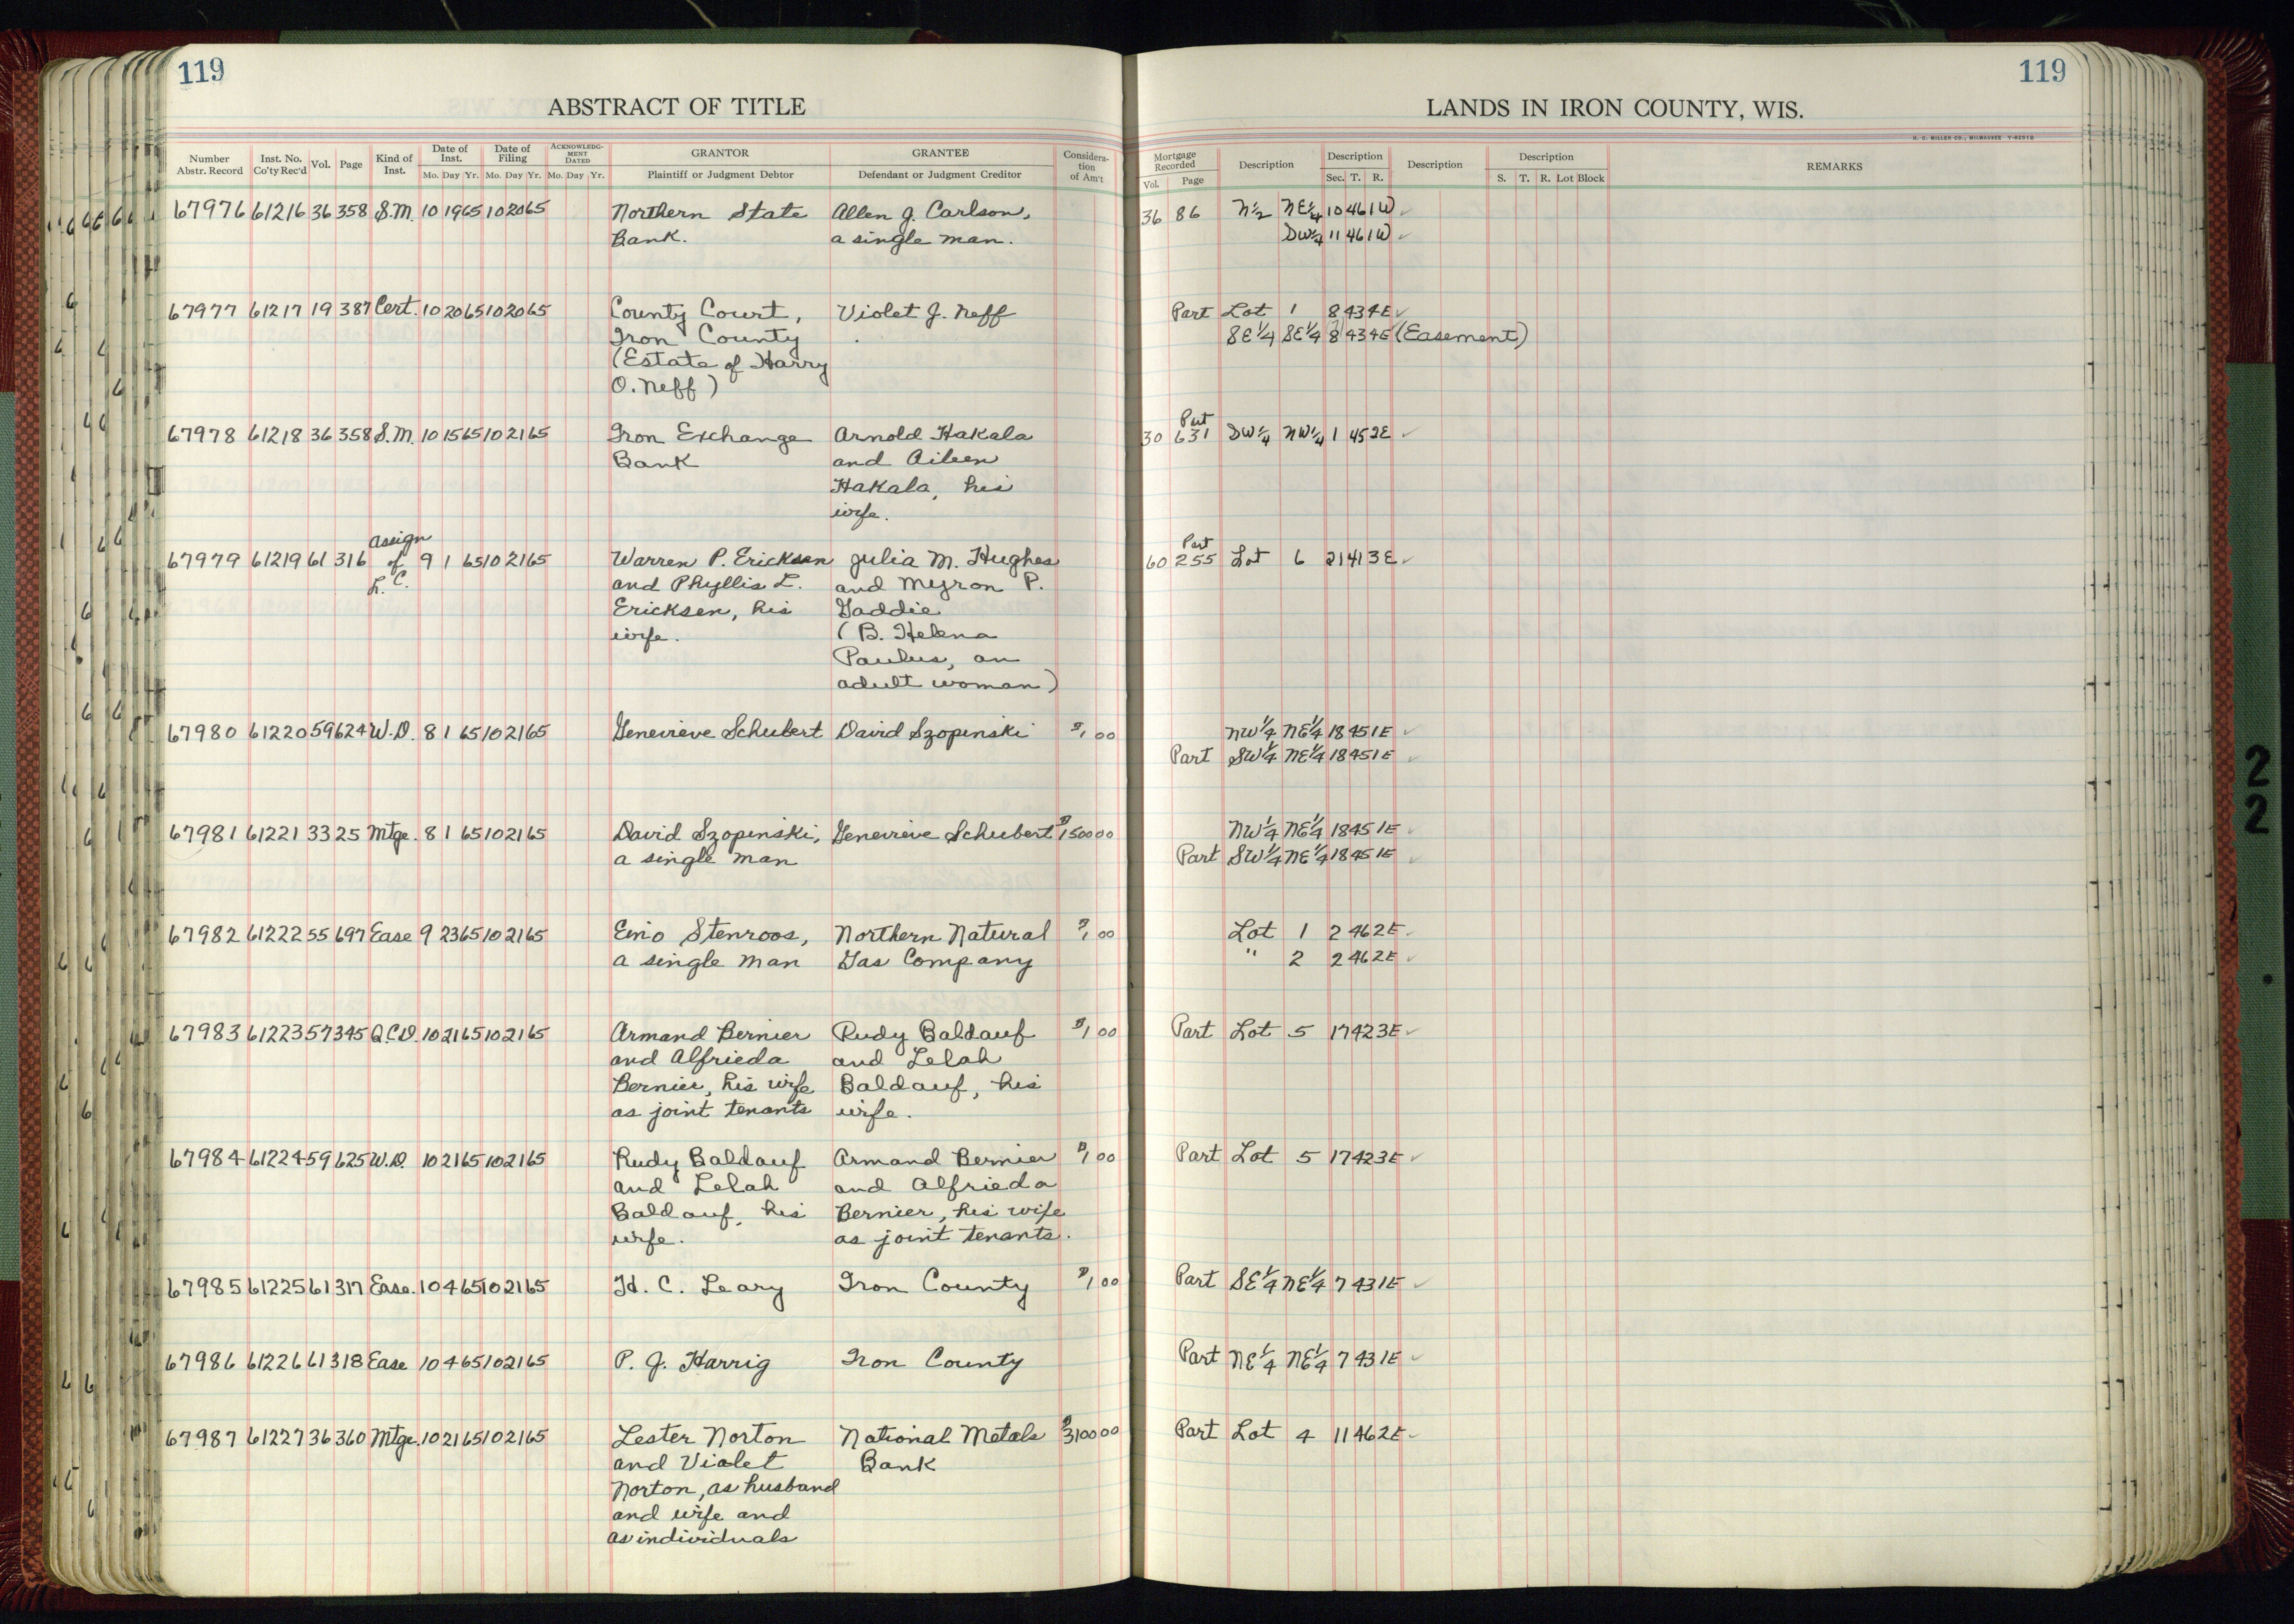 119
119
ABSTRACT OF TITLE
LANDS IN IRON COUNTY, WIS.
H. C. MILLER CO., MILWAUKEE Y-82918
Number Abstr. Record Inst. No. Co'ty Rec'd Vol. Page Kind of Inst. Date of Inst. Mo. Day Yr. Date of Filing Mo. Day Yr. ACKNOWLEDGMENT DATED Mo. Day Yr. GRANTOR Plaintiff or Judgment Debtor GRANTEE Defendant or Judgment Creditor Consideration of Am't
Mortgage Recorded Vol. Page Description Description Sec. T. R. Description Description S. T. R. Lot Block REMARKS
67976 61216 36 358 S.M. 10 19 65 10 20 65 Northern State Allen J. Carlson, 36 86 N½ NE¼ 10 46 1W ✓
Bank. a single man. SW¼ 11 46 1W ✓
67977 61217 19 387 Cert. 10 20 65 10 20 65 County Court, Violet J. Neff Part Lot 1 8 43 4E ✓
Iron County SE¼ SE¼ 8 43 4E (Easement)
(Estate of Harry
O. Neff)
Part
67978 61218 36 358 S.M. 10 15 65 10 21 65 Iron Exchange Arnold Hakala 30 631 SW¼ NW¼ 1 45 2E ✓
Bank and Aileen
Hakala, his
wife.
Assign Part
67979 61219 61 316 of 9 1 65 10 21 65 Warren P. Ericksen Julia M. Hughes 60 255 Lot 6 21 41 3E ✓
L.C. and Phyllis L. and Myron P.
Ericksen, his Gaddie
wife. (B. Helena
Paulus, an
adult woman)
67980 61220 59 624 W.D. 8 1 65 10 21 65 Genevieve Schubert David Szopinski $1 00 NW¼ NE¼ 18 45 1E ✓
Part SW¼ NE¼ 18 45 1E ✓
67981 61221 33 25 Mtge. 8 1 65 10 21 65 David Szopinski, Genevieve Schubert $1500 00 NW¼ NE¼ 18 45 1E ✓
a single man Part SW¼ NE¼ 18 45 1E ✓
67982 61222 55 697 Ease 9 23 65 10 21 65 Eino Stenroos, Northern Natural $1 00 Lot 1 2 46 2E ✓
a single man Gas Company " 2 2 46 2E ✓
67983 61223 57 345 Q.C.D. 10 21 65 10 21 65 Armand Bernier Rudy Baldauf $1 00 Part Lot 5 17 42 3E ✓
and Alfrieda and Lelah
Bernier, his wife Baldauf, his
as joint tenants wife.
67984 61224 59 625 W.D. 10 21 65 10 21 65 Rudy Baldauf Armand Bernier $1 00 Part Lot 5 17 42 3E ✓
and Lelah and Alfrieda
Baldauf, his Bernier, his wife
wife. as joint tenants.
67985 61225 61 317 Ease. 10 4 65 10 21 65 H. C. Leary Iron County $1 00 Part SE¼ NE¼ 7 43 1E ✓
67986 61226 61 318 Ease 10 4 65 10 21 65 P. J. Harrig Iron County Part NE¼ NE¼ 7 43 1E ✓
67987 61227 36 360 Mtge. 10 21 65 10 21 65 Lester Norton National Metals $3100 00 Part Lot 4 11 46 2E ✓
and Violet Bank
Norton, as husband
and wife and
as individuals
2
2